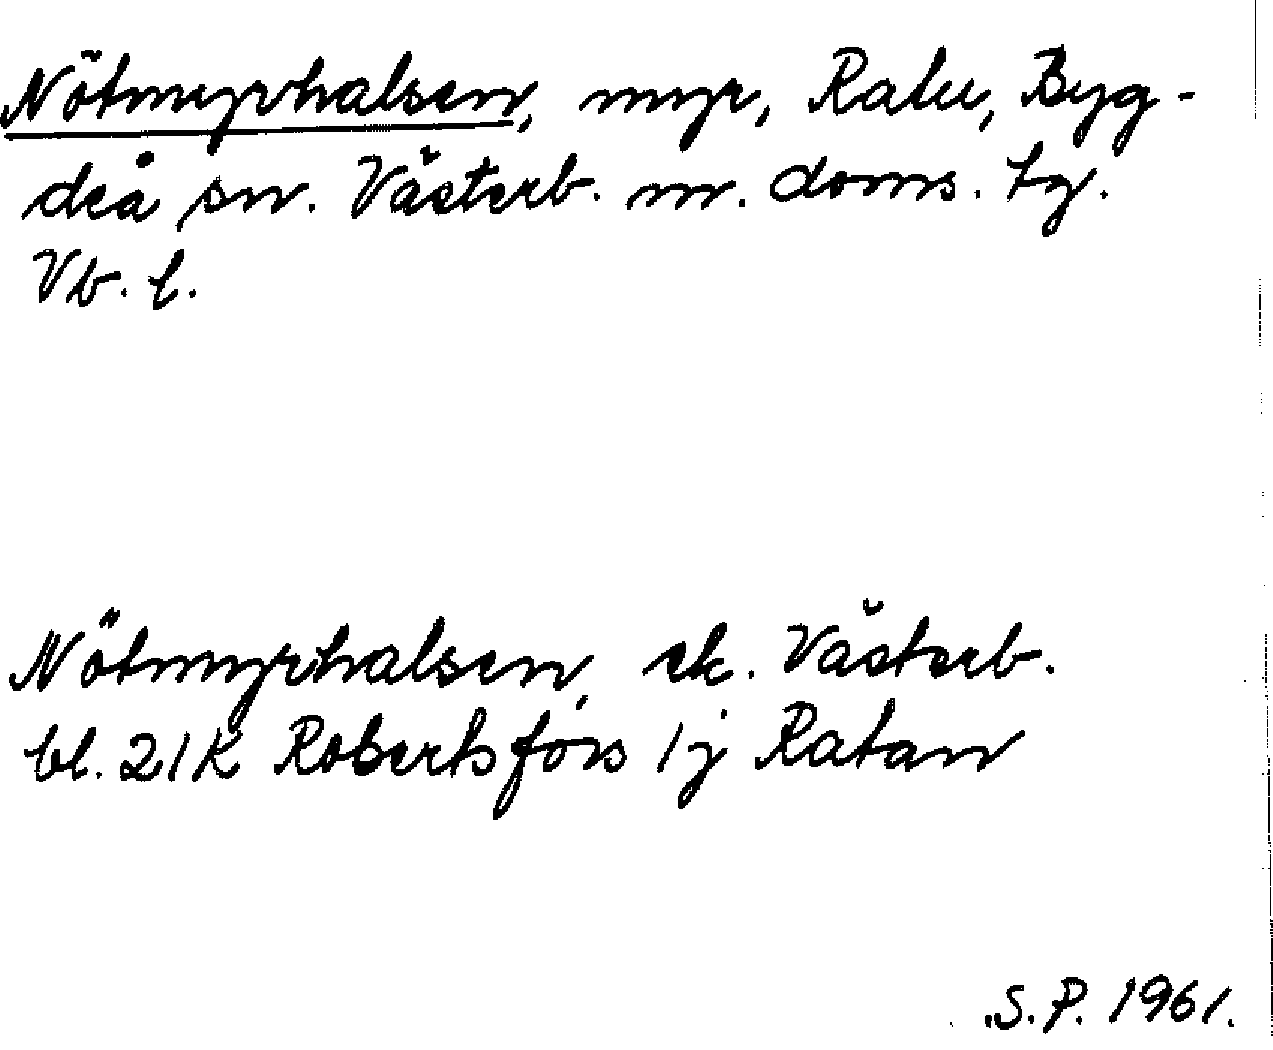 Nötmyrhalsen, myr, Ratu, Byg-
deå sn. Västerb. n. doms. tg.
Vb. l.
Nötmyrhalsen, ek. Västerb.
bl. 21K Robertsfors 1j Ratan
S.P. 1961.